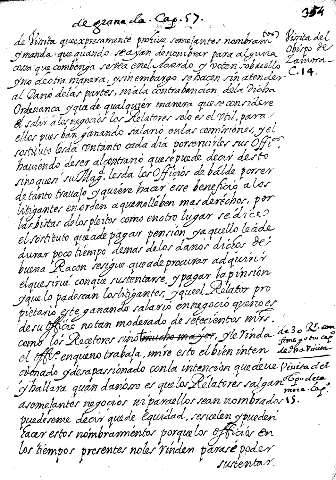 de granada. Cap. 57.
354
de Visita que expresamente prohive semejantes nombramtos
y manda que quando se ayan de nombrar para alguna
cosa que combenga sea en el Acuerdo y voten sobre ello
y no de otra manera, y sin embargo se hacen sin atender
al daño de las partes, ni a la contrabencion de la dicha
Ordenanca y que de qualquier manera que se considere
el salir a los negocios los Relatores solo es Util, para
ellos pues ban ganando salario en las comisiones, y el
sostituto les da un tanto cada dia por servirles sus Officios
haviendo de ser al contrario que se puede decir de esto
sino que su Mag. les da los Officios de balde por ser
de tanto travajo y quiere hacer este beneficio a los
litigantes en orden a que no lleben mas derechos, por
las vistas de los pleitos como en otro lugar se dice
el sostituto que a de pagar pension, y a quello le a de
durar poco tiempo demas de los daños dichos de
buena Racon se sigue que a de procurar adquirir
el que sirva con que sustentarse, y pagar la pinsion
y que lo padescan los litigantes, y que el Relator pro
pietario este ganando salario en negocio que no es
de su officio
como los Receptores sino mucho mayor, y le rinda
el officio en quien travaja, mire esto el bien inten
cionado y desapasionado con la intencion que deve
y hallara quan dañoso es que los Relatores salgan
a semejantes negocios ni para ellos sean nombrados
puedeseme decir que de equidad, se suelen y pueden
hacer estos nombramientos porque los officios en
los tiempos presentes no les rinden para se poder
sustentar
Visita del
Obispo de
Zamora
C. 14.
Visita del
15.